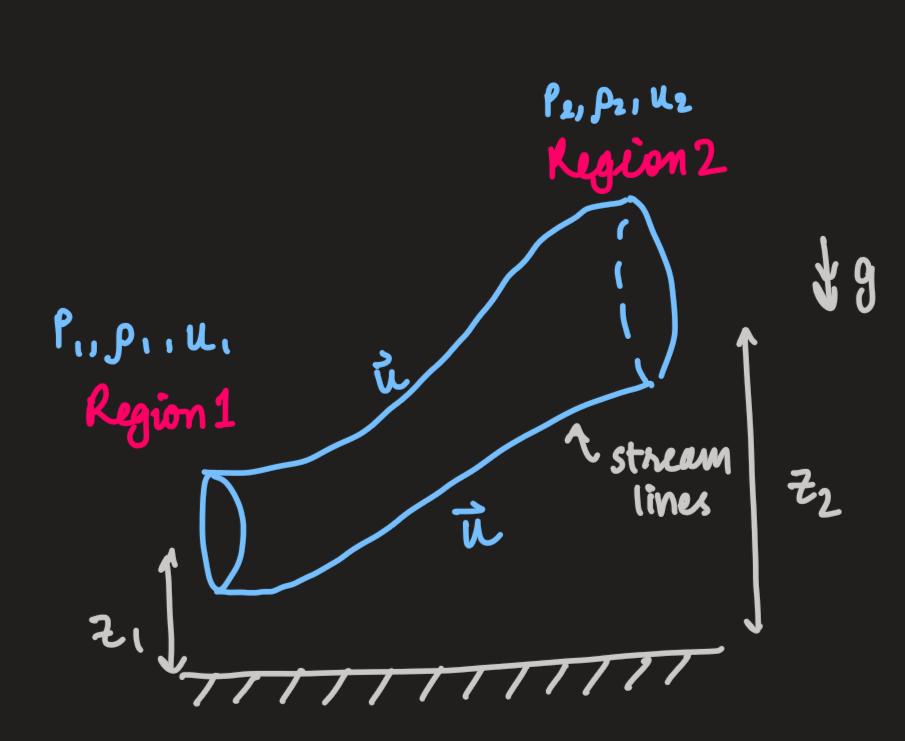 P₂, ρ₂, u₂
Region 2
g
P₁, ρ₁, u₁
Region 1
u⃗
stream
lines
z₂
u⃗
z₁